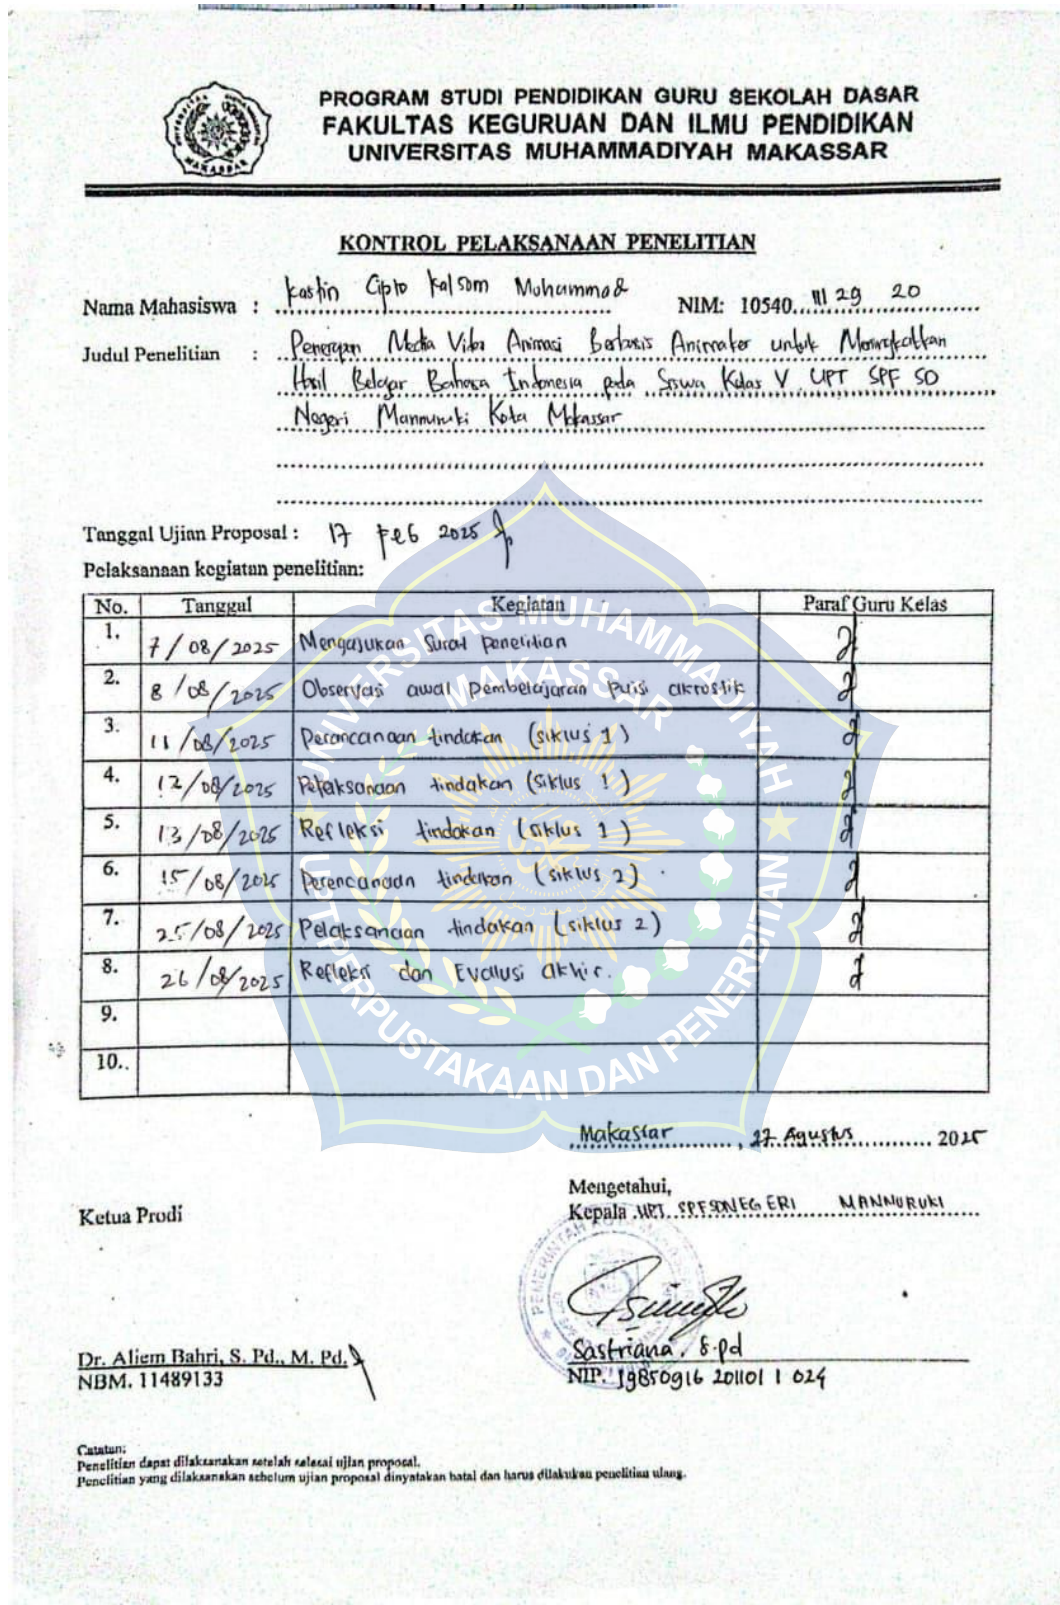 PROGRAM STUDI PENDIDIKAN GURU SEKOLAH DASAR
FAKULTAS KEGURUAN DAN ILMU PENDIDIKAN
UNIVERSITAS MUHAMMADIYAH MAKASSAR
KONTROL PELAKSANAAN PENELITIAN
Nama Mahasiswa : Kastin Cipto Kalsom Muhammad NIM: 10540 111 29 20
Judul Penelitian : Penerapan Media Video Animasi Berbasis Animaker untuk Meningkatkan
Hasil Belajar Bahasa Indonesia pada Siswa Kelas V UPT SPF SD
Negeri Mannuruki Kota Makassar
Tanggal Ujian Proposal : 17 Feb 2025
Pelaksanaan kegiatan penelitian:
No. Tanggal Kegiatan Paraf Guru Kelas
1. 7/08/2025 Mengajukan Surat penelitian
2. 8/08/2025 Observasi awal pembelajaran puisi akrostik
3. 11/08/2025 Perancanaan tindakan (siklus 1)
4. 12/08/2025 Pelaksanaan tindakan (siklus 1)
5. 13/08/2025 Refleksi tindakan (siklus 1)
6. 15/08/2025 Perencanaan tindakan (siklus 2)
7. 25/08/2025 Pelaksanaan tindakan (siklus 2)
8. 26/08/2025 Refleksi dan Evalusi akhir.
9.
10..
UNIVERSITAS MUHAMMADIYAH
MAKASSAR
UPT PERPUSTAKAAN DAN PENERBITAN
Makassar, 27 Agustus 2025
Mengetahui,
Ketua Prodi
Kepala UPT SPF SDNEGERI MANNURUKI
Dr. Aliem Bahri, S. Pd., M. Pd.
NBM. 11489133
Sastriana. S.pd
NIP. 19850916 201101 1 024
Catatan:
Penelitian dapat dilaksanakan setelah selesai ujian proposal.
Penelitian yang dilaksanakan sebelum ujian proposal dinyatakan batal dan harus dilakukan penelitian ulang.